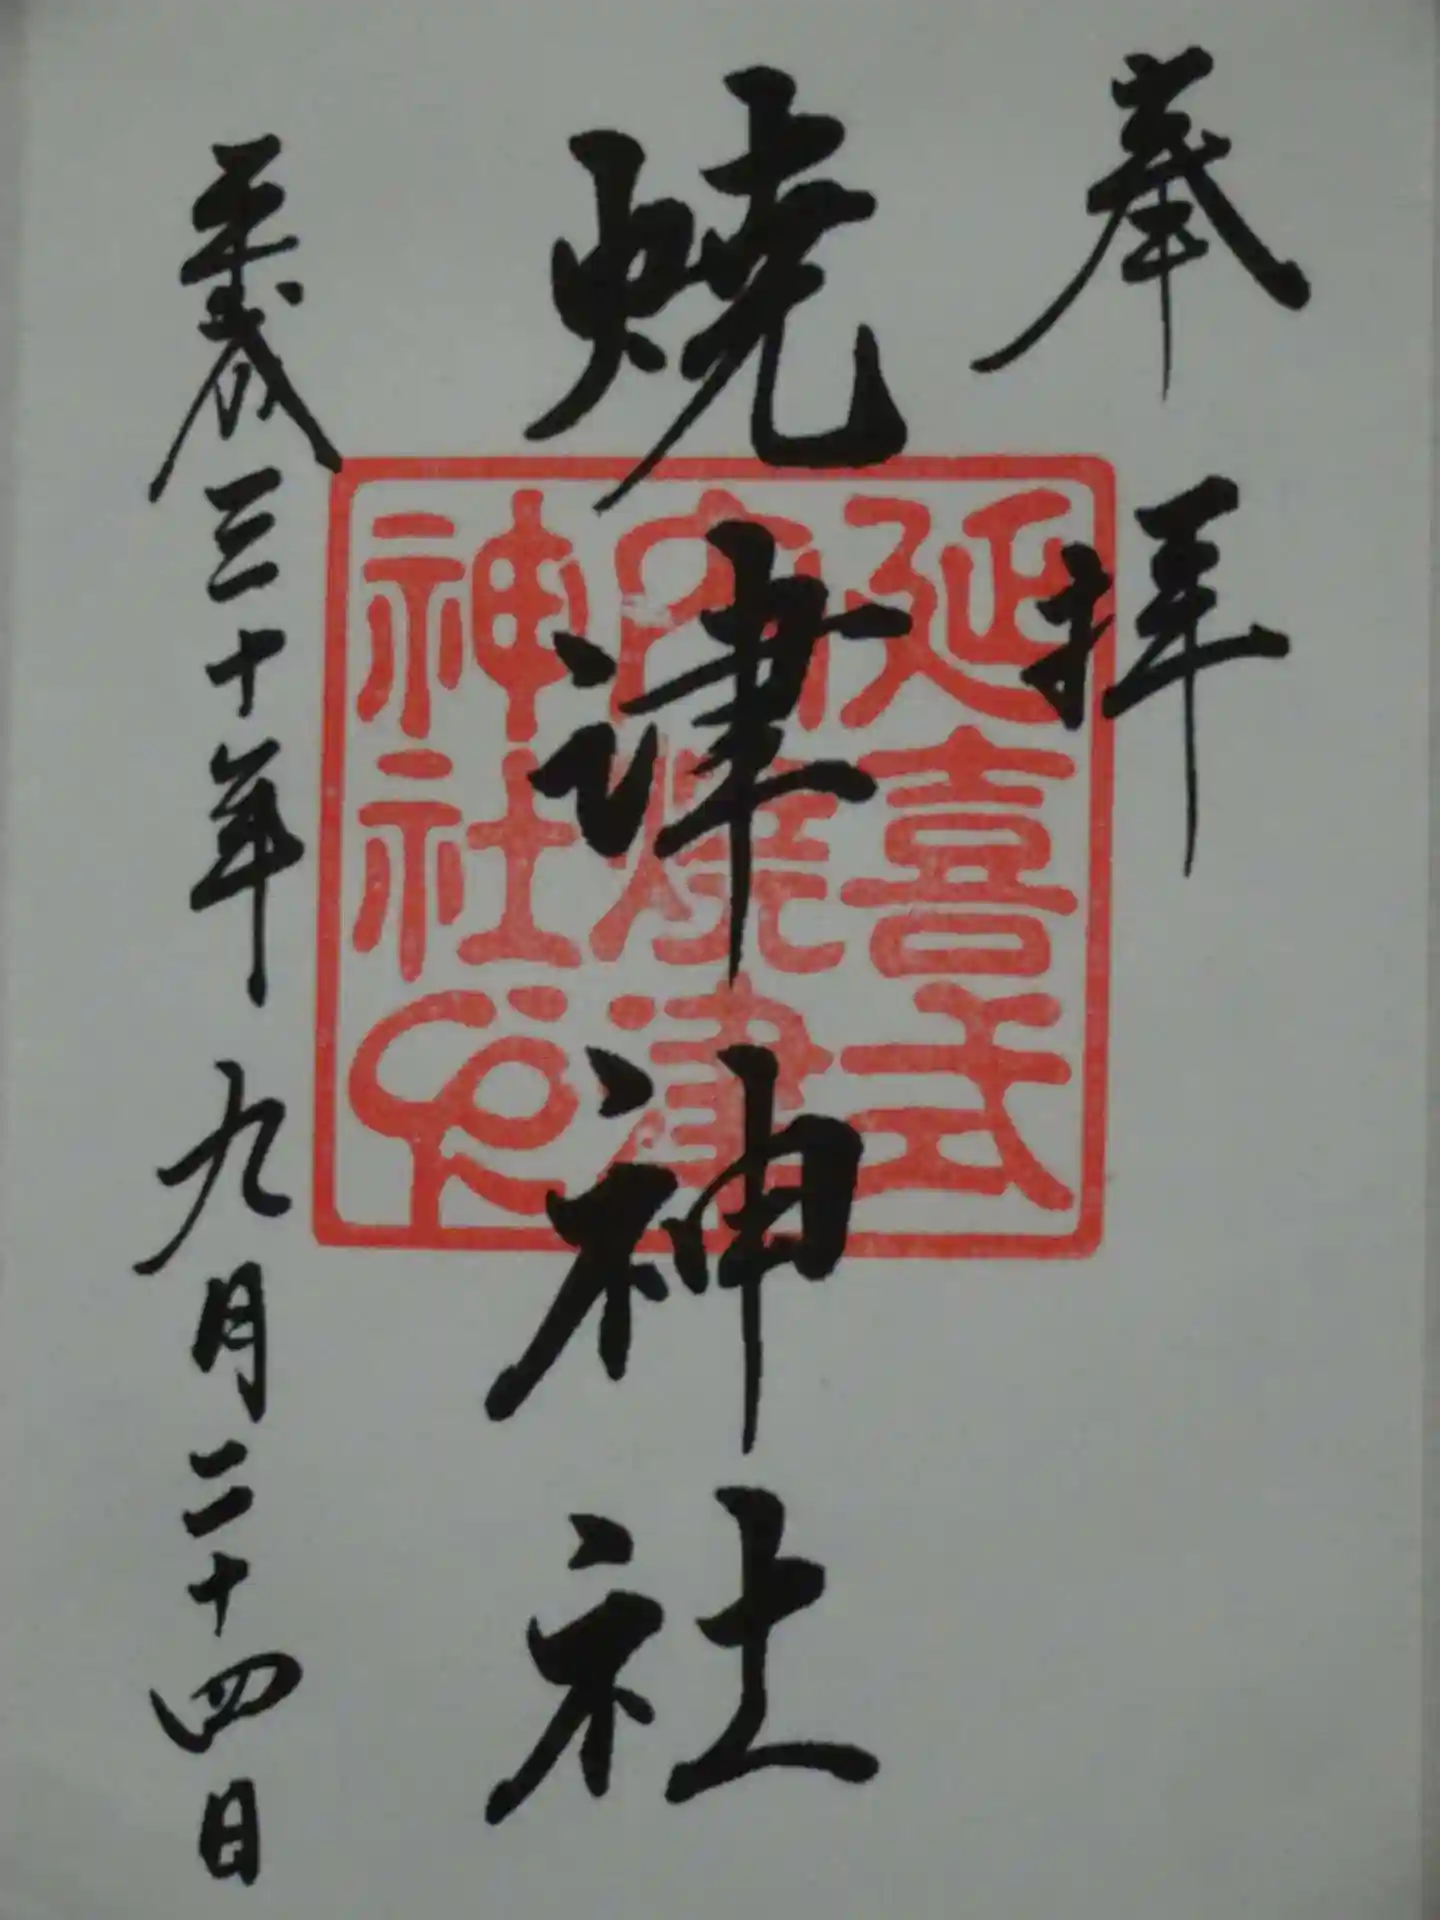 奉拝
焼津神社
延喜式
内焼津
神社
平成三十年九月二十四日